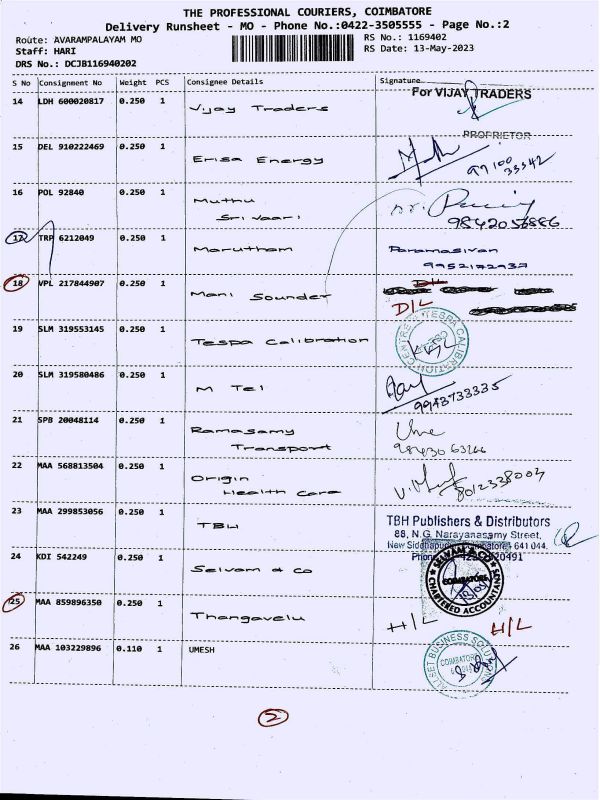 THE PROFESSIONAL COURIERS, COIMBATORE
Delivery Runsheet - MO - Phone No.:0422-3505555 - Page No.:2
Route: AVARAMPALAYAM MO
RS No.: 1169402
Staff: HARI
RS Date: 13-May-2023
DRS No.: DCJB116940202
S No Consignment No Weight PCS Consignee Details Signature
14 LDH 600020817 0.250 1 Vijay Traders For VIJAY TRADERS
PROPRIETOR
15 DEL 910222469 0.250 1 Erisa Energy 99100
33342
16 POL 92840 0.250 1 Muthu
Sri Vaari 9842056886
17 TRP 6212049 0.250 1 Marutham Paramasivan
9952172937
18 VPL 217844907 0.250 1 Mani Sounder D/L
D/L
19 SLM 319553145 0.250 1 Tespa Calibration TESPA CALIBRATION CENTRE
20 SLM 319580486 0.250 1 M Tel 9943733335
21 SPB 20048114 0.250 1 Ramasamy
Transport
22 MAA 568813504 0.250 1 Origin
Health Care 8012338003
23 MAA 299853056 0.250 1 TBH TBH Publishers & Distributors
88, N.G. Narayanasamy Street,
New Siddhapudur, Coimbatore - 641 044.
Phone
20491
24 KDI 542249 0.250 1 Selvam & Co SELVAM & CO
COIMBATORE
CHARTERED ACCOUNTANTS
25 MAA 859896350 0.250 1 Thangavelu H/L H/L
26 MAA 103229896 0.110 1 UMESH ALLSET BUSINESS SOLUTIONS
COIMBATORE
2